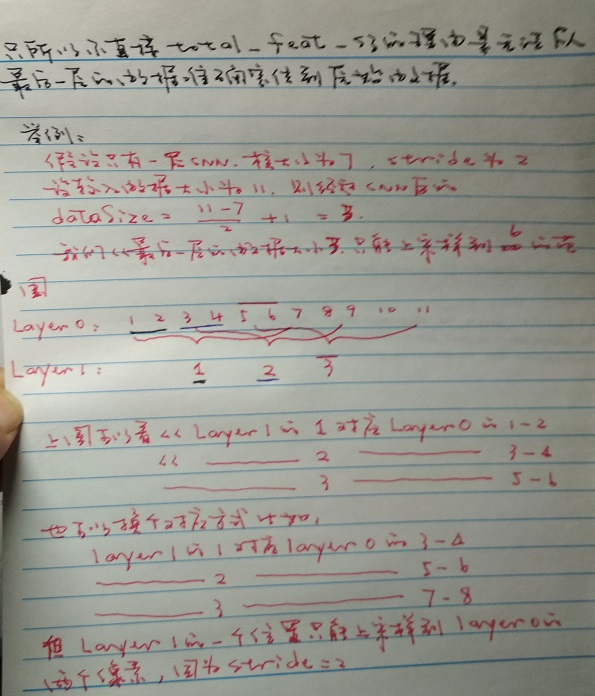 只所以不直接 total_feat_53 的理由是无法从
最后一层的数据位置直接到原始的数据.
举例:
假设只有一层CNN. 核大小为7, stride为2
设输入数据大小为11. 则经过CNN后的
dataSize = \frac{11-7}{2} + 1 = 3.
我们从最后一层的数据大小3, 只能上采样到6的范
围
Layer0: 1 2 3 4 5 6 7 8 9 10 11
Layer1: 1 2 3
上图可以看 << Layer1 的 1 对应 Layer0 的 1-2
<< —— 2 —— 3-4
—— 3 —— 5-6
也可以换个对应方式 比如,
layer1 的 1 对应 layer0 的 3-4
—— 2 —— 5-6
—— 3 —— 7-8
但 Layer1的一个位置只能上采样到 layer0的
两个像素, 因为stride=2